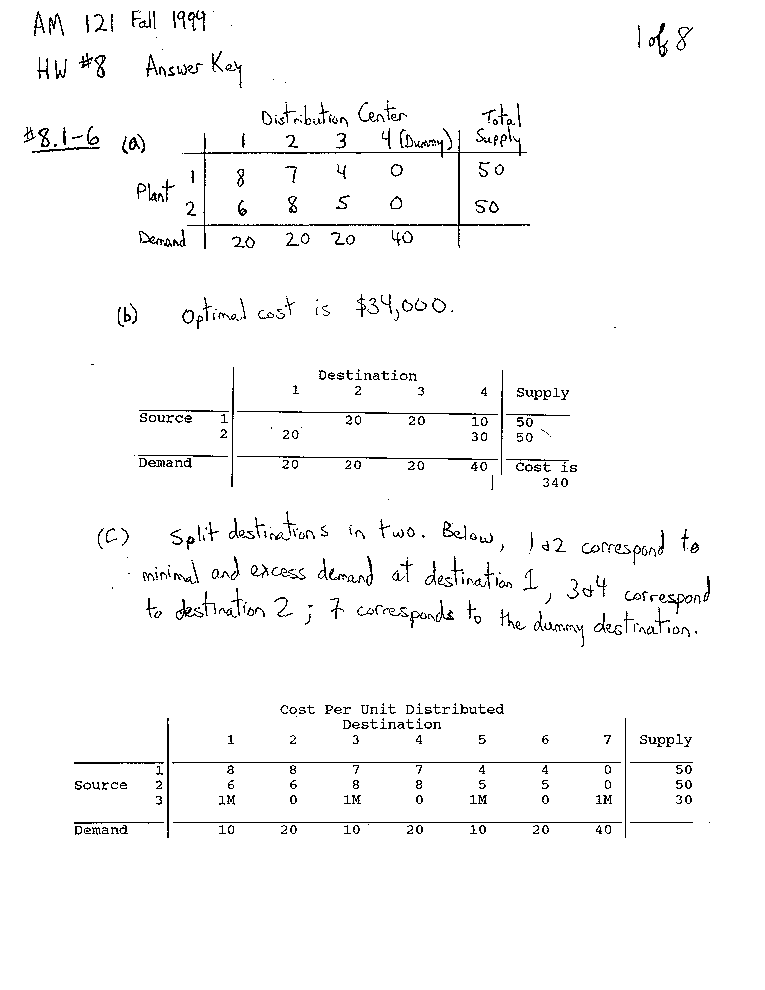 AM 121 Fall 1999
1 of 8
HW #8 Answer Key
#8.1-6 (a) Distribution Center Total
1 2 3 4 (Dummy) Supply
Plant 1 8 7 4 0 50
2 6 8 5 0 50
Demand 20 20 20 40
(b) Optimal cost is $34,000.
Destination
1 2 3 4 Supply
Source 1 20 20 10 50
2 20 30 50
Demand 20 20 20 40 Cost is
340
(C) Split destinations in two. Below, 1&2 correspond to
minimal and excess demand at destination 1, 3&4 correspond
to destination 2; 7 corresponds to the dummy destination.
Cost Per Unit Distributed
Destination
1 2 3 4 5 6 7 Supply
1 8 8 7 7 4 4 0 50
Source 2 6 6 8 8 5 5 0 50
3 1M 0 1M 0 1M 0 1M 30
Demand 10 20 10 20 10 20 40